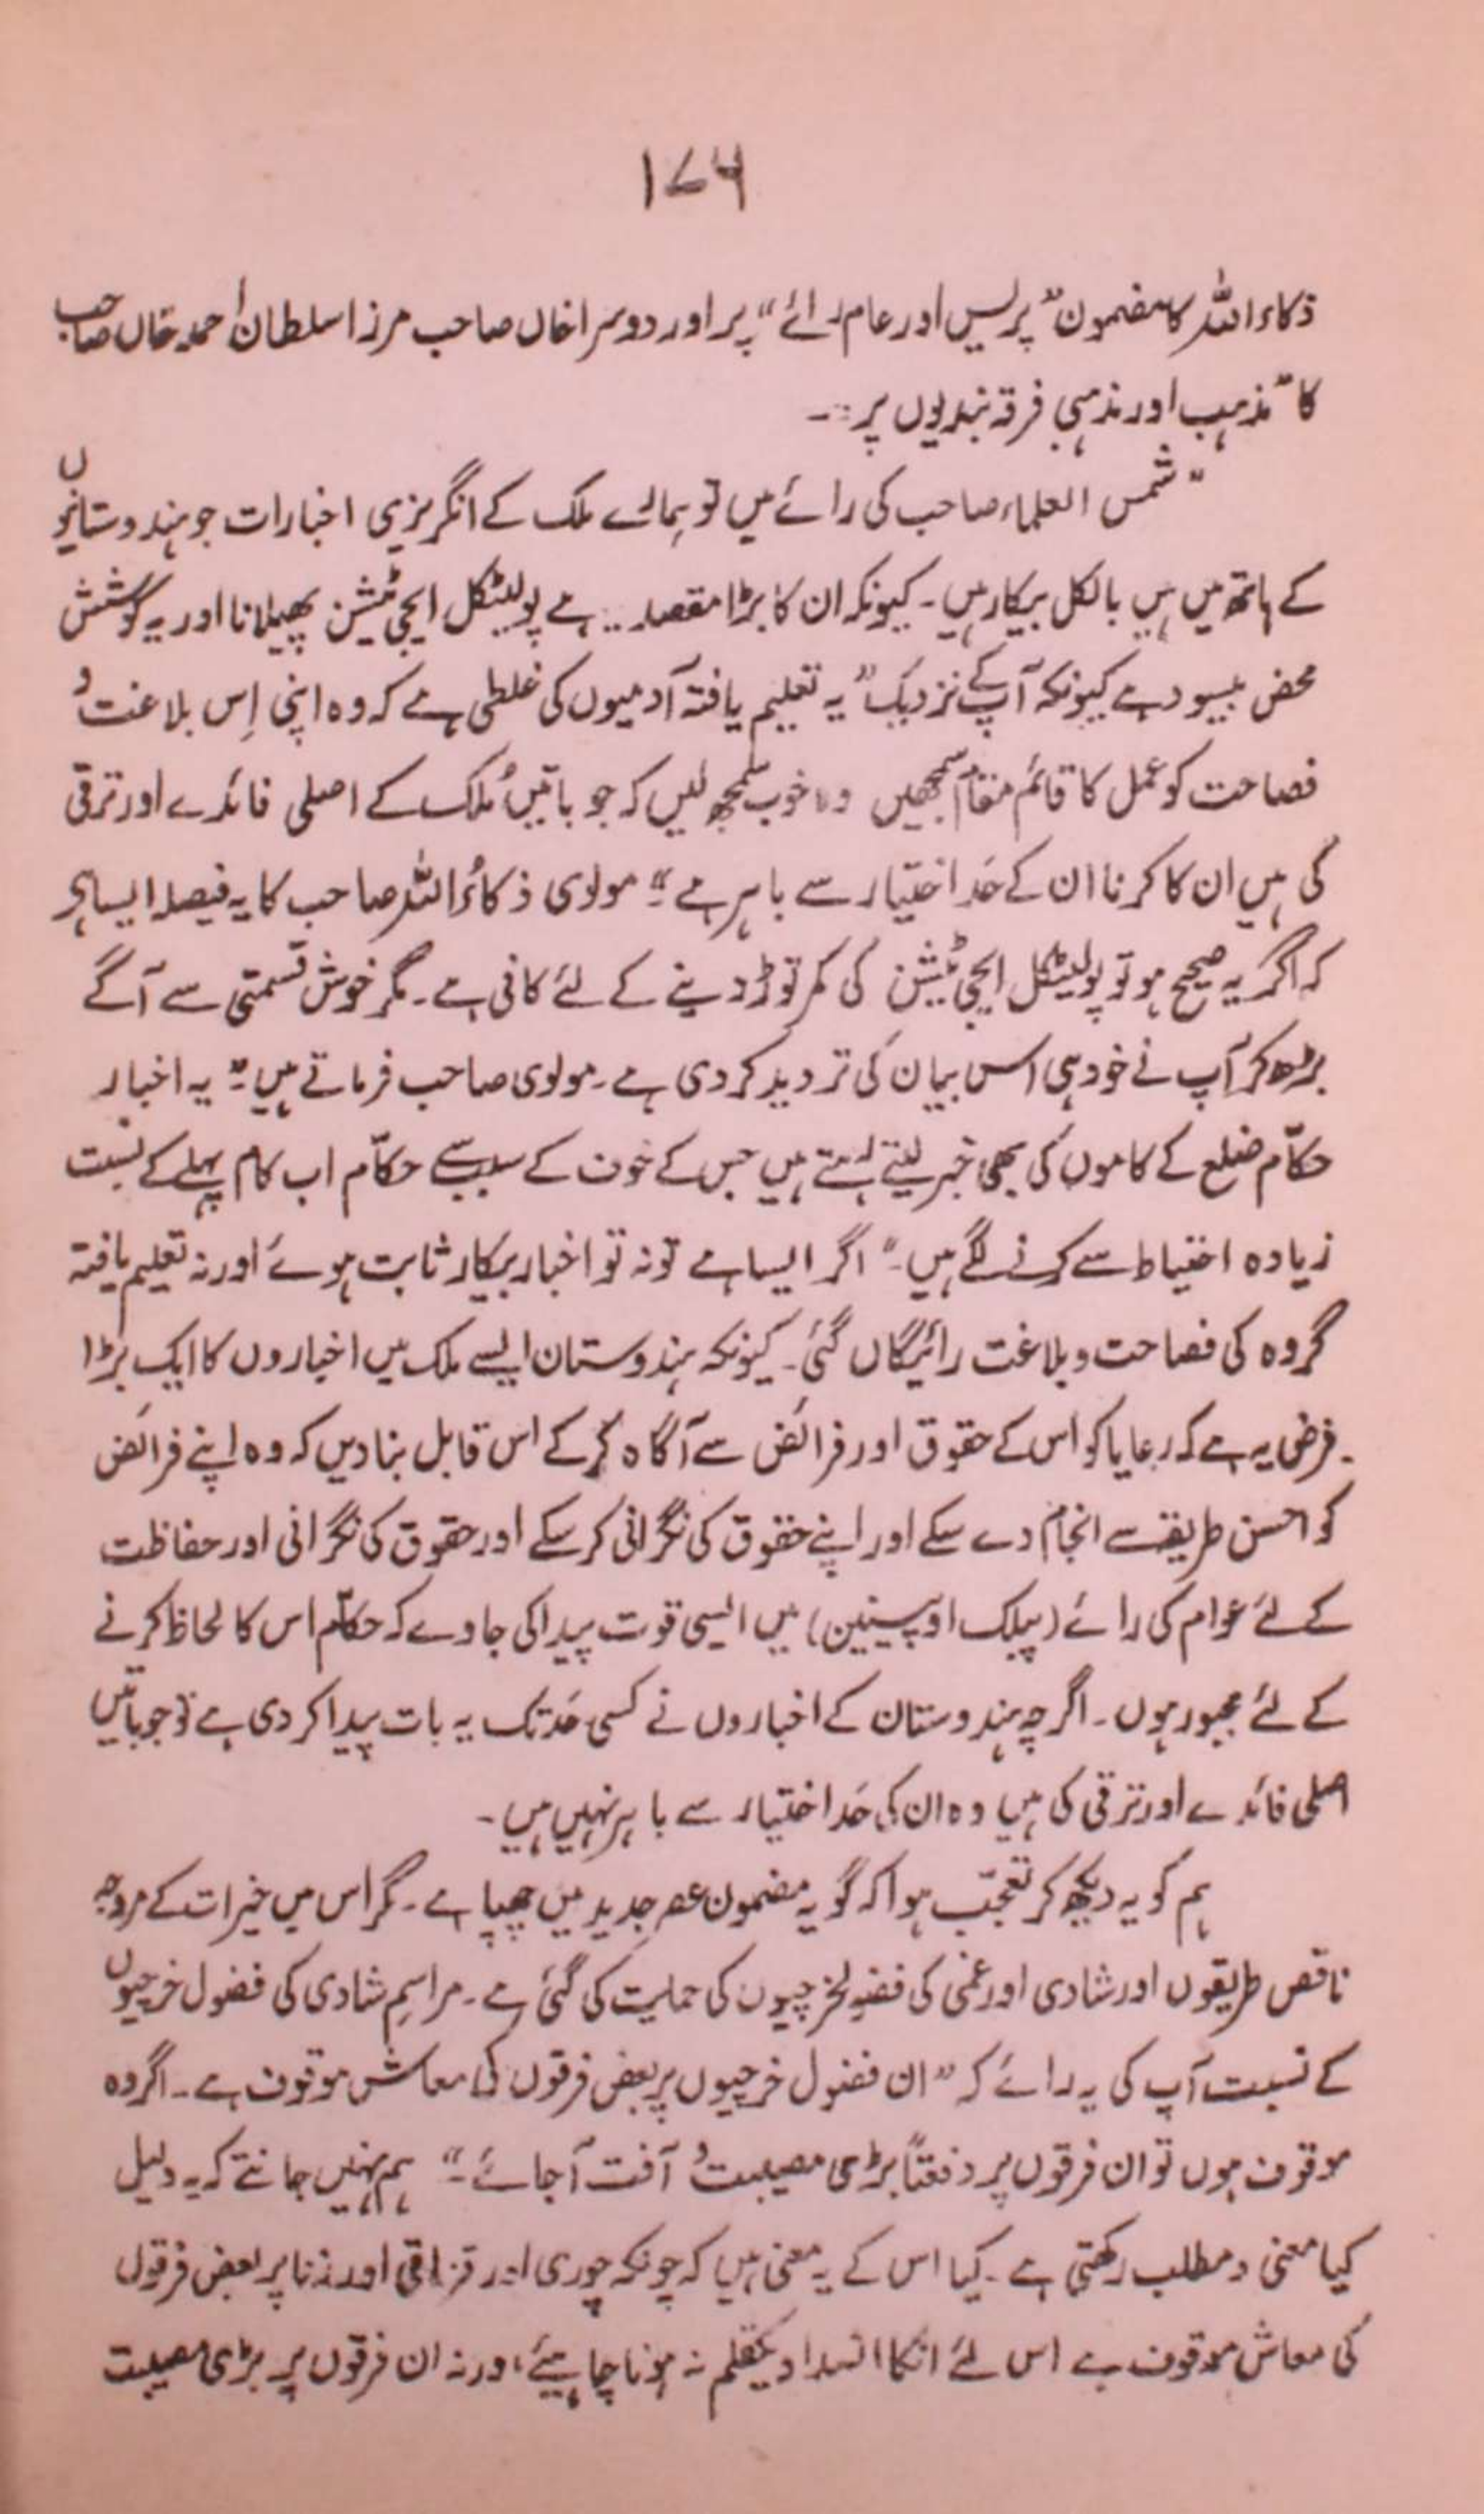 ۱۷۶
ذکاء اللہ کا مضمون "پریس اور عام رائے" پر اور دوسرا خاں صاحب مرزا سلطان احمد خاں صاحب
کا "مذہب اور مذہبی فرقہ بندیوں پر :۔
"شمس العلماء صاحب کی رائے میں تو ہمارے ملک کے انگریزی اخبارات جو ہندوستانیوں
کے ہاتھ میں ہیں بالکل بیکار ہیں۔ کیونکہ ان کا بڑا مقصد .. ہے پولیٹکل ایجی ٹیشن پھیلانا اور یہ کوشش
محض بیسود ہے کیونکہ آپ کے نزدیک "یہ تعلیم یافتہ آدمیوں کی غلطی ہے کہ وہ اپنی اِس بلاغت و
فصاحت کو عمل کا قائم مقام سمجھیں وہ خوب سمجھ لیں کہ جو باتیں مُلک کے اصلی فائدے اور ترقی
کی ہیں ان کا کرنا ان کے حَد اختیار سے باہر ہے"۔ مولوی ذکاءُ اللہ صاحب کا یہ فیصلہ ایسا ہے
کہ اگر یہ صحیح ہو تو پولیٹکل ایجی ٹیشن کی کمر توڑ دینے کے لئے کافی ہے۔ مگر خوش قسمتی سے آگے
بڑھ کر آپ نے خود ہی اس بیان کی تردید کر دی ہے۔ مولوی صاحب فرماتے ہیں۔ "یہ اخبار
حکّام ضلع کے کاموں کی بھی خبر لیتے رہتے ہیں جس کے خوف کے سبب سے حکّام اب کام پہلے کے نسبت
زیادہ احتیاط سے کرنے لگے ہیں۔" اگر ایسا ہے تو نہ تو اخبار بیکار ثابت ہوئے اور نہ تعلیم یافتہ
گروہ کی فصاحت و بلاغت رائیگاں گئی۔ کیونکہ ہندوستان ایسے ملک میں اخباروں کا ایک بڑا
فرض یہ ہے کہ رعایا کو اس کے حقوق اور فرائض سے آگاہ کر کے اس قابل بنا دیں کہ وہ اپنے فرائض
کو احسن طریقے سے انجام دے سکے اور اپنے حقوق کی نگرانی کر سکے اور حقوق کی نگرانی اور حفاظت
کے لئے عوام کی رائے (پبلک اوپینین) میں ایسی قوت پیدا کی جاوے کہ حکّام اس کا لحاظ کرنے
کے لئے مجبور ہوں۔ اگرچہ ہندوستان کے اخباروں نے کسی حَد تک یہ بات پیدا کر دی ہے تو جو باتیں
اصلی فائدے اور ترقی کی ہیں وہ ان کی حَد اختیار سے باہر نہیں ہیں۔
ہم کو یہ دیکھ کر تعجّب ہوا کہ گو یہ مضمون عصر جدید میں چھپا ہے۔ مگر اس میں خیرات کے مروجہ
ناقص طریقوں اور شادی اور غمی کی فضولخرچیوں کی حمایت کی گئی ہے۔ مراسمِ شادی کی فضول خرچیوں
کے نسبت آپ کی یہ رائے کہ "ان فضول خرچیوں پر بعض فرقوں کی معاش موقوف ہے۔ اگر وہ
موقوف ہوں تو ان فرقوں پر دفعتاً بڑی مصیبت و آفت آ جائے۔" ہم نہیں جانتے کہ یہ دلیل
کیا معنی و مطلب رکھتی ہے۔ کیا اس کے یہ معنی ہیں کہ چونکہ چوری اور قزاقی اور زنا پر بعض فرقوں
کی معاش موقوف ہے اس لئے انکا انسداد یکقلم نہ ہونا چاہیئے، ورنہ ان فرقوں پر بڑی مصیبت